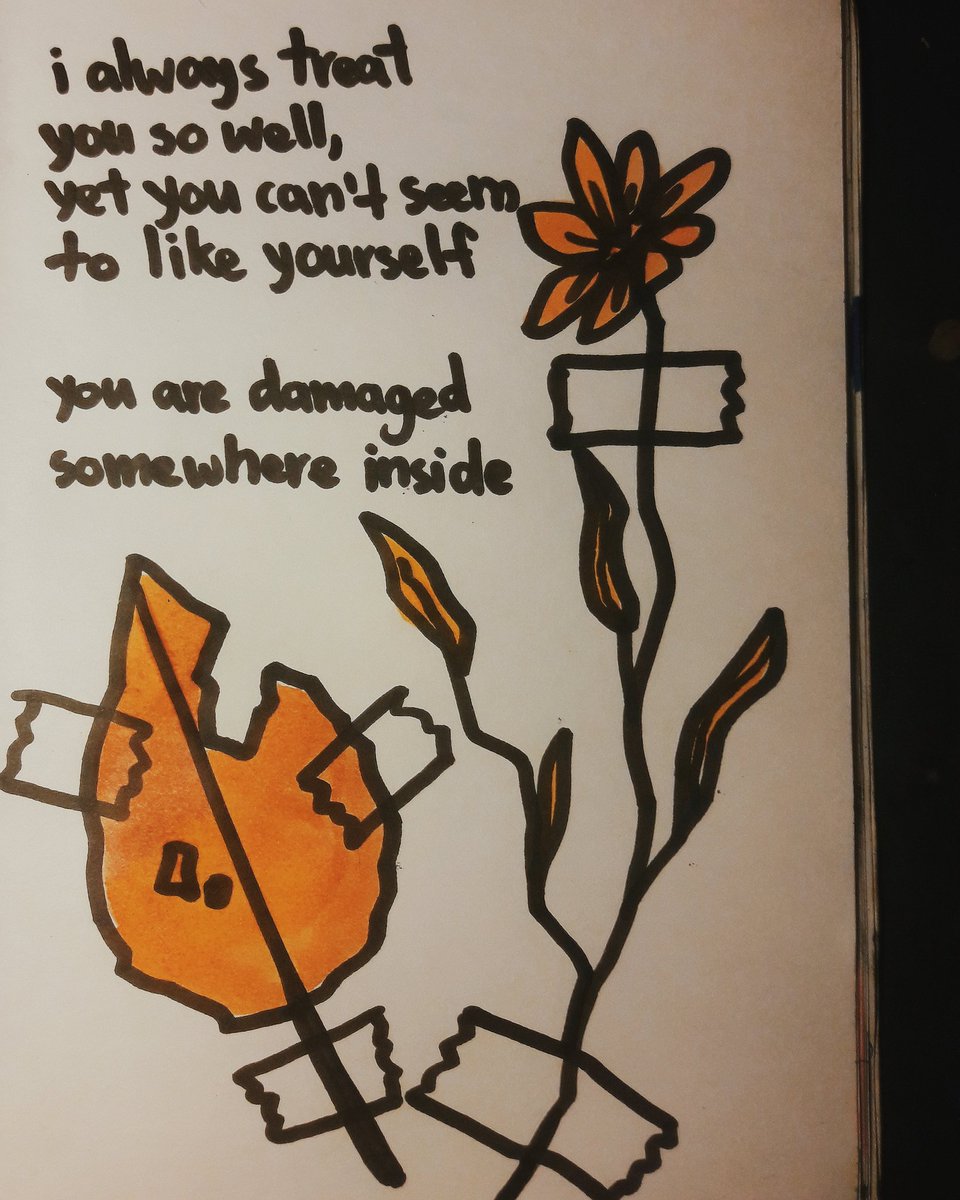 i always treat
you so well,
yet you can't seem
to like yourself
you are damaged
somewhere inside